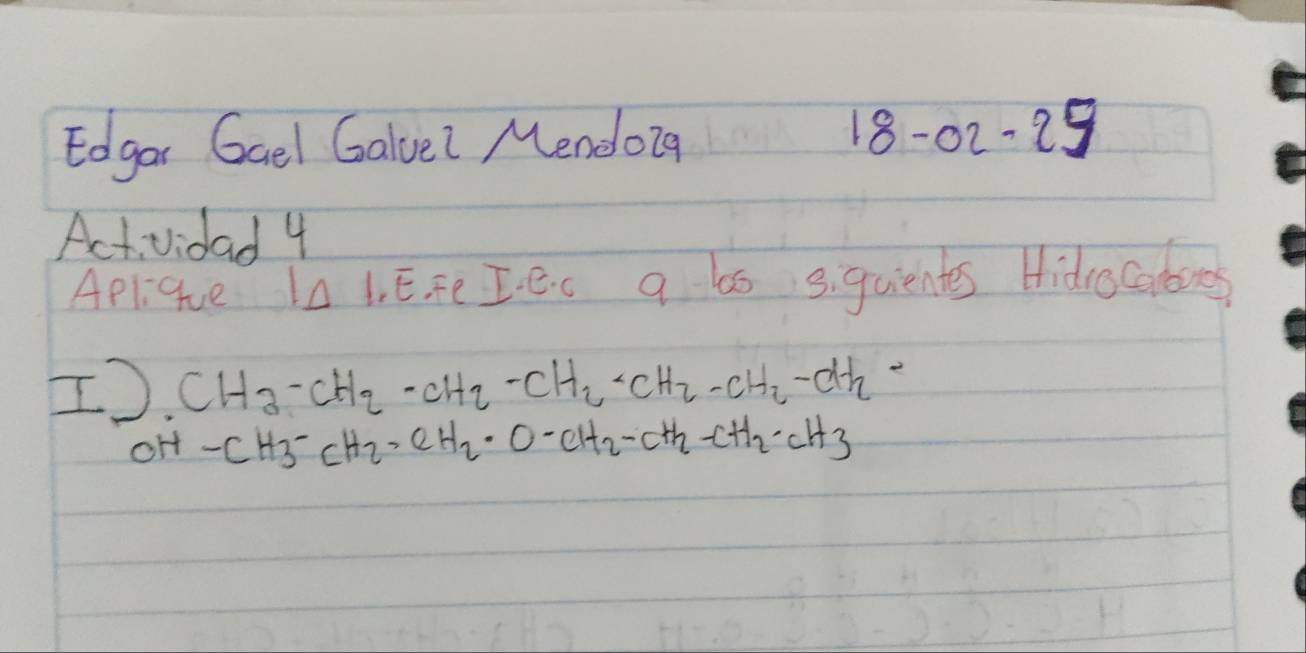 Edgar Gael Galvez Mendoza 18-02-25
Actividad 4
Aplique la I.E.Fe I.e.c a los siguientes Hidrocarburos
I). CH3-CH2-CH2-CH2-CH2-CH2-CH2-
OH-CH3-CH2-CH2-O-CH2-CH2-CH2-CH3